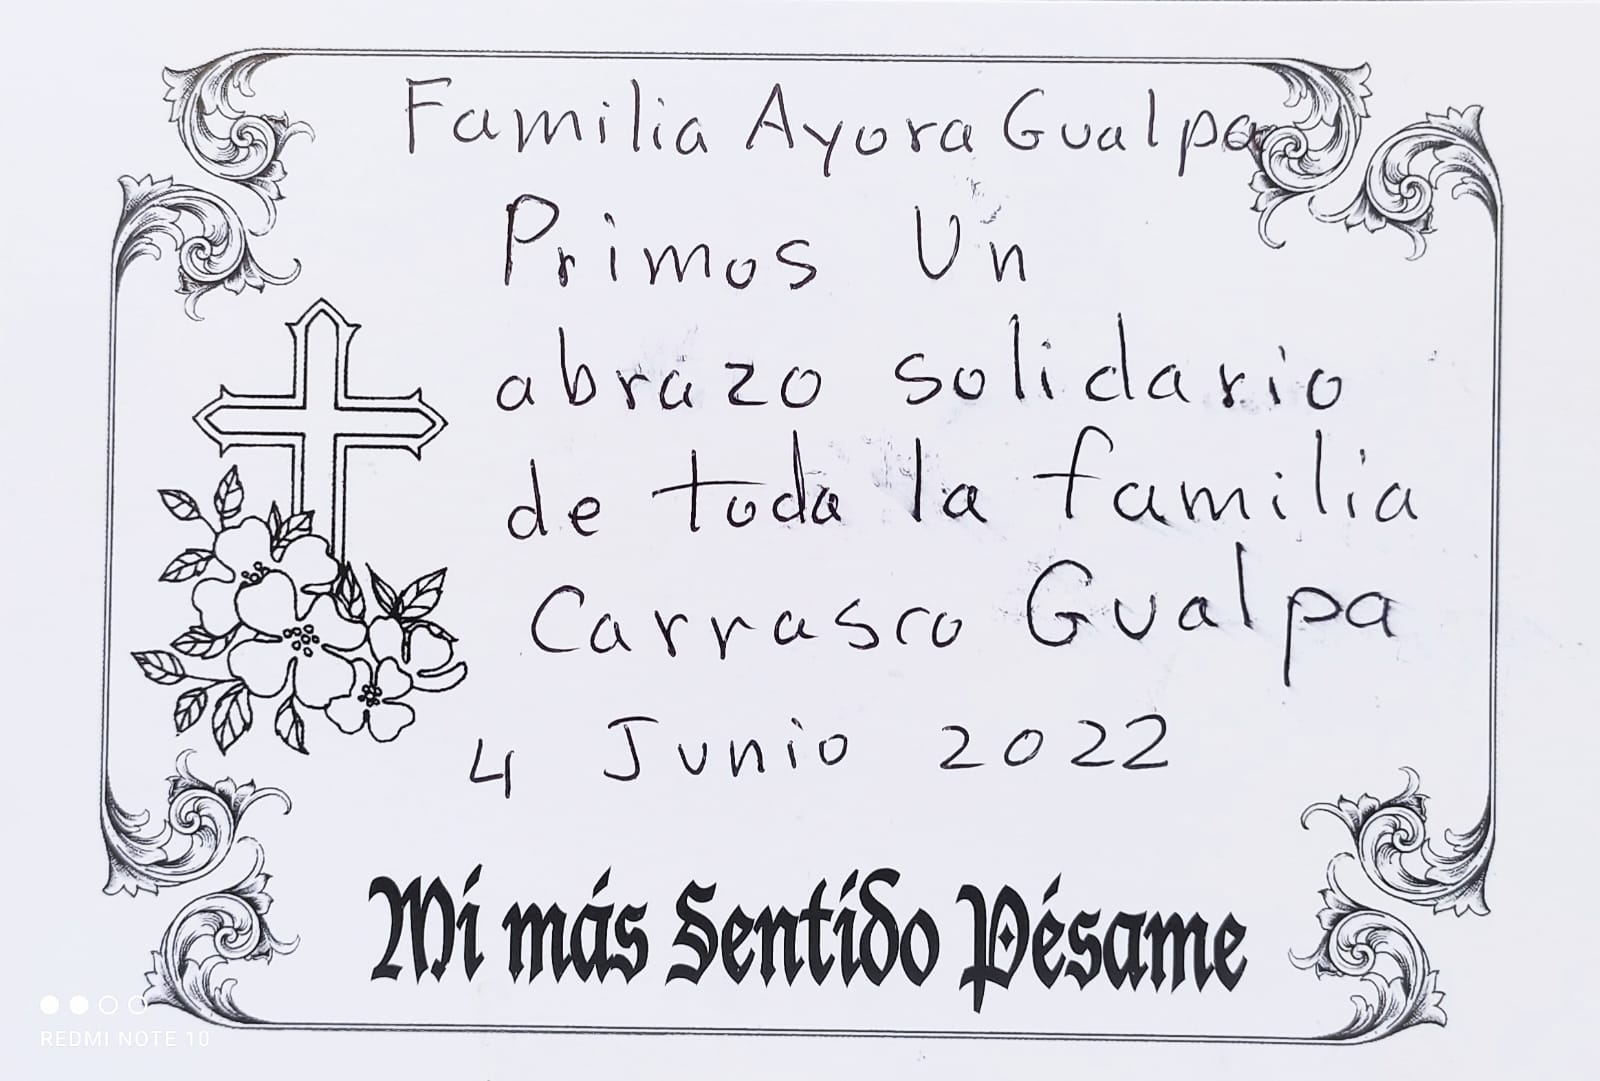 Familia Ayora Gualpa
Primos Un
abrazo solidario
de toda la familia
Carrasco Gualpa
4 Junio 2022
Mi más Sentido Pésame
REDMI NOTE 10